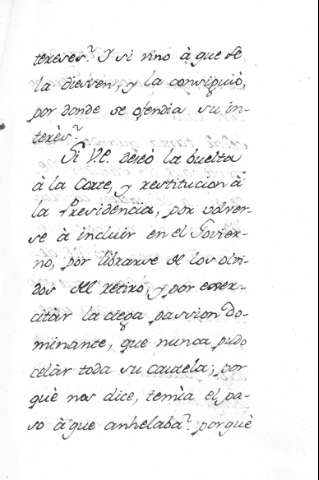 tereses? Y si vino à que se
la diessen, y la consiguiò,
por donde se ofendia su in-
terès?
Si V.E. deseò la buelta
à la Corte, y restitucion à
la Presidencia, por volver-
se à incluir en el Govier-
no, por librarse de los olvi-
dos del retiro, y por exer-
citar la ciega passion do-
minante, que nunca pudo
celar toda su cautela; por
què nos dice, temia el pa-
so à que anhelaba? porquè